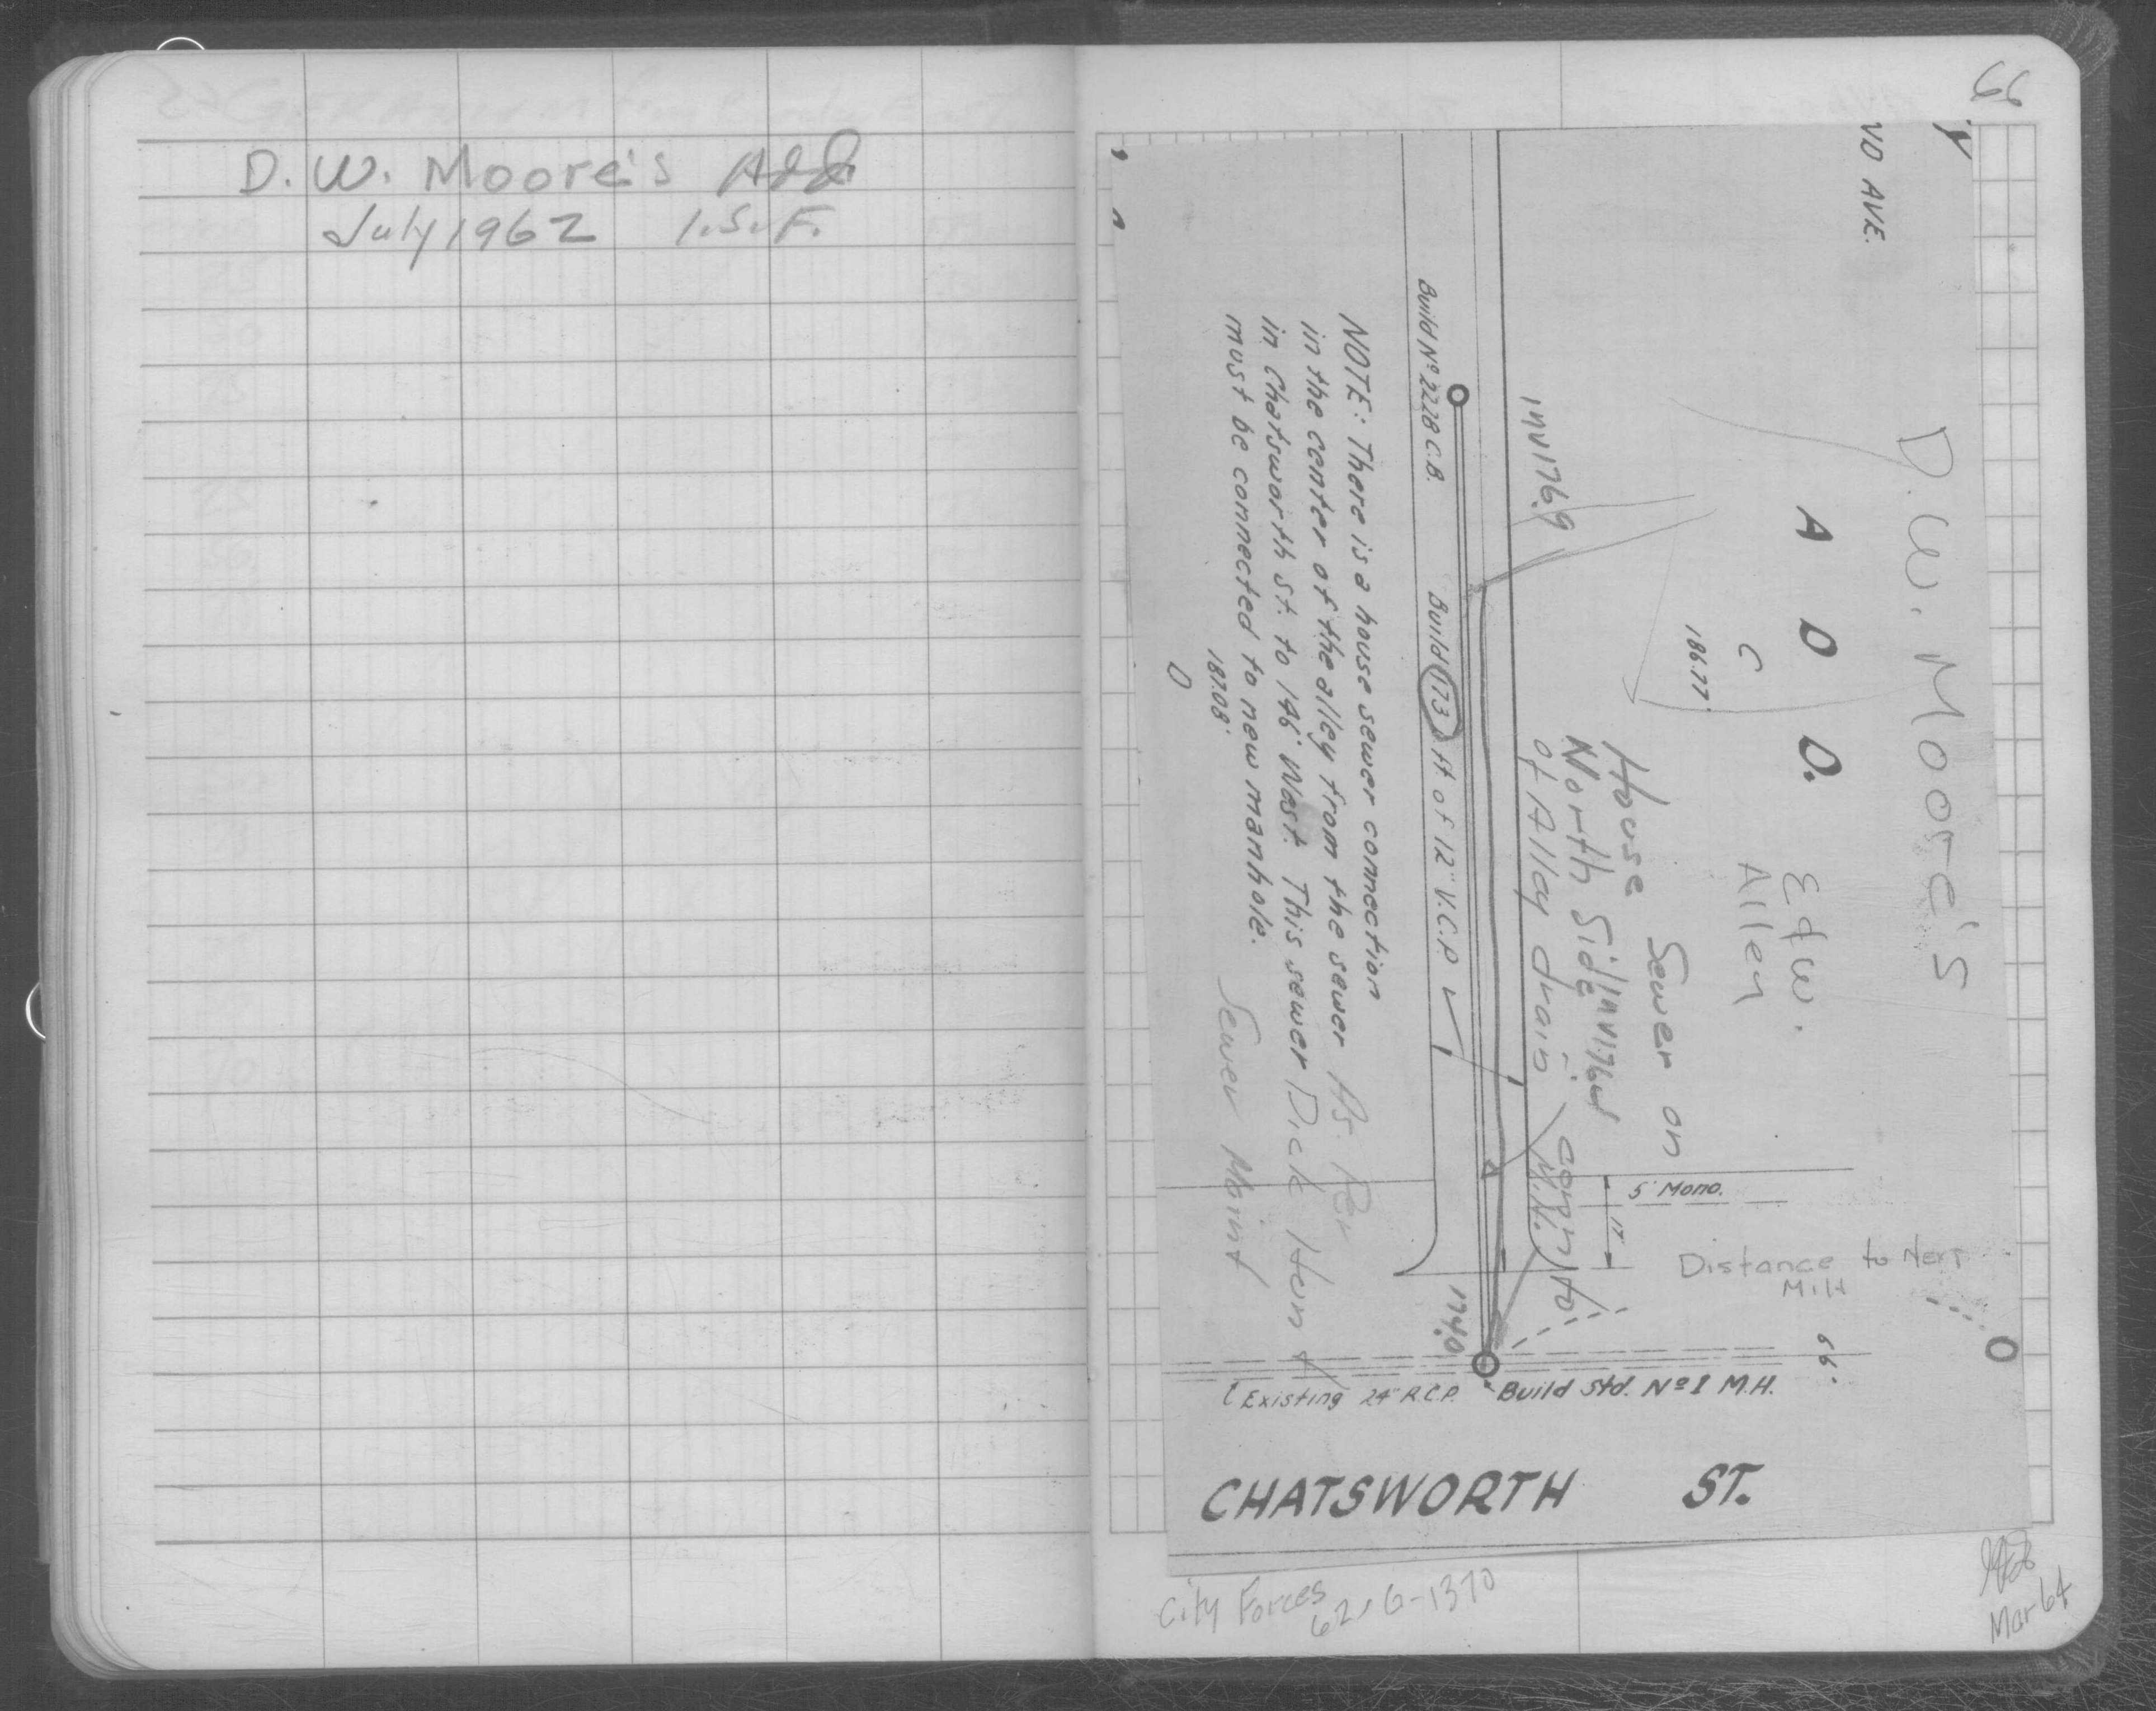 D. W. Moore's Add.
July 1962 I.S.F.
66
ND AVE.
D. W. Moore's
A D D.
C
186.77'
E & W.
Alley
inv 176.9
House Sewer on
North Side
of Alley drain
conn to
M.H.
Build Nº 2228 C.B.
Build 173 ft of 12" V.C.P.
NOTE: There is a house sewer connection
in the center of the alley from the sewer
in Chatsworth St. to 146' West. This sewer
must be connected to new manhole.
187.08'
Dick Hunt
Sewer Maint
5' Mono.
17'
Distance to Next
M.H.
174.0
66'
Existing 24" R.C.P.
Build Std. Nº 1 M.H.
CHATSWORTH ST.
City Forces
62, G-1370
Mar 64